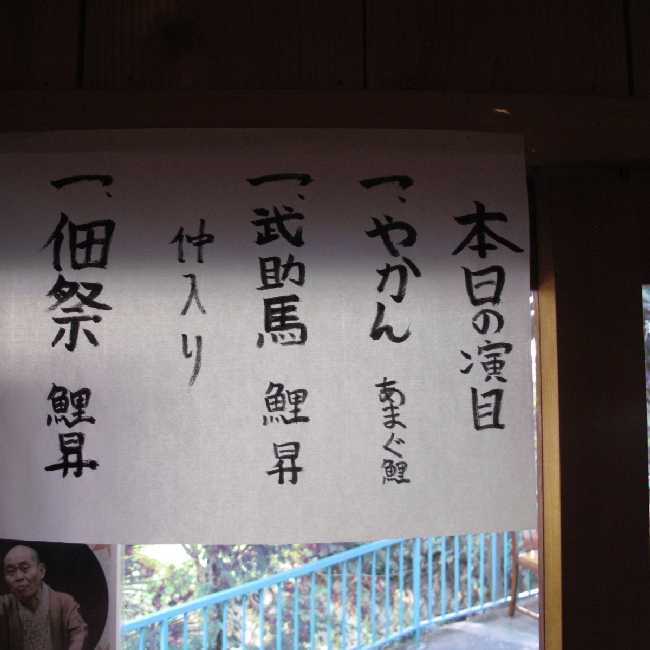 本日の演目
一、やかん あまぐ鯉
一、武助馬 鯉昇
仲入り
一、佃祭 鯉昇